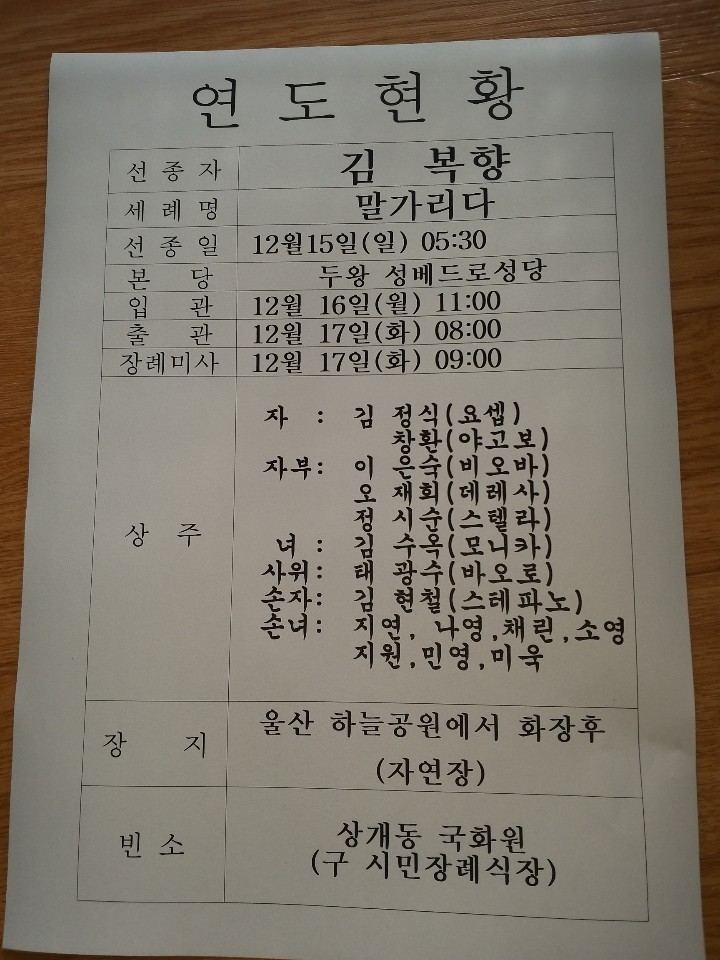 연 도 현 황
선 종 자 김 복향
세 례 명 말가리다
선 종 일 12월15일(일) 05:30
본 당 두왕 성베드로성당
입 관 12월 16일(월) 11:00
출 관 12월 17일(화) 08:00
장례미사 12월 17일(화) 09:00
상 주
자 : 김 정식(요셉)
창환(야고보)
자부: 이 은숙(비오바)
오 재희(데레사)
정 시순(스텔라)
녀 : 김 수옥(모니카)
사위: 태 광수(바오로)
손자: 김 현철(스테파노)
손녀: 지연, 나영,채린,소영
지원,민영,미욱
장 지 울산 하늘공원에서 화장후
(자연장)
빈 소 상개동 국화원
(구 시민장례식장)